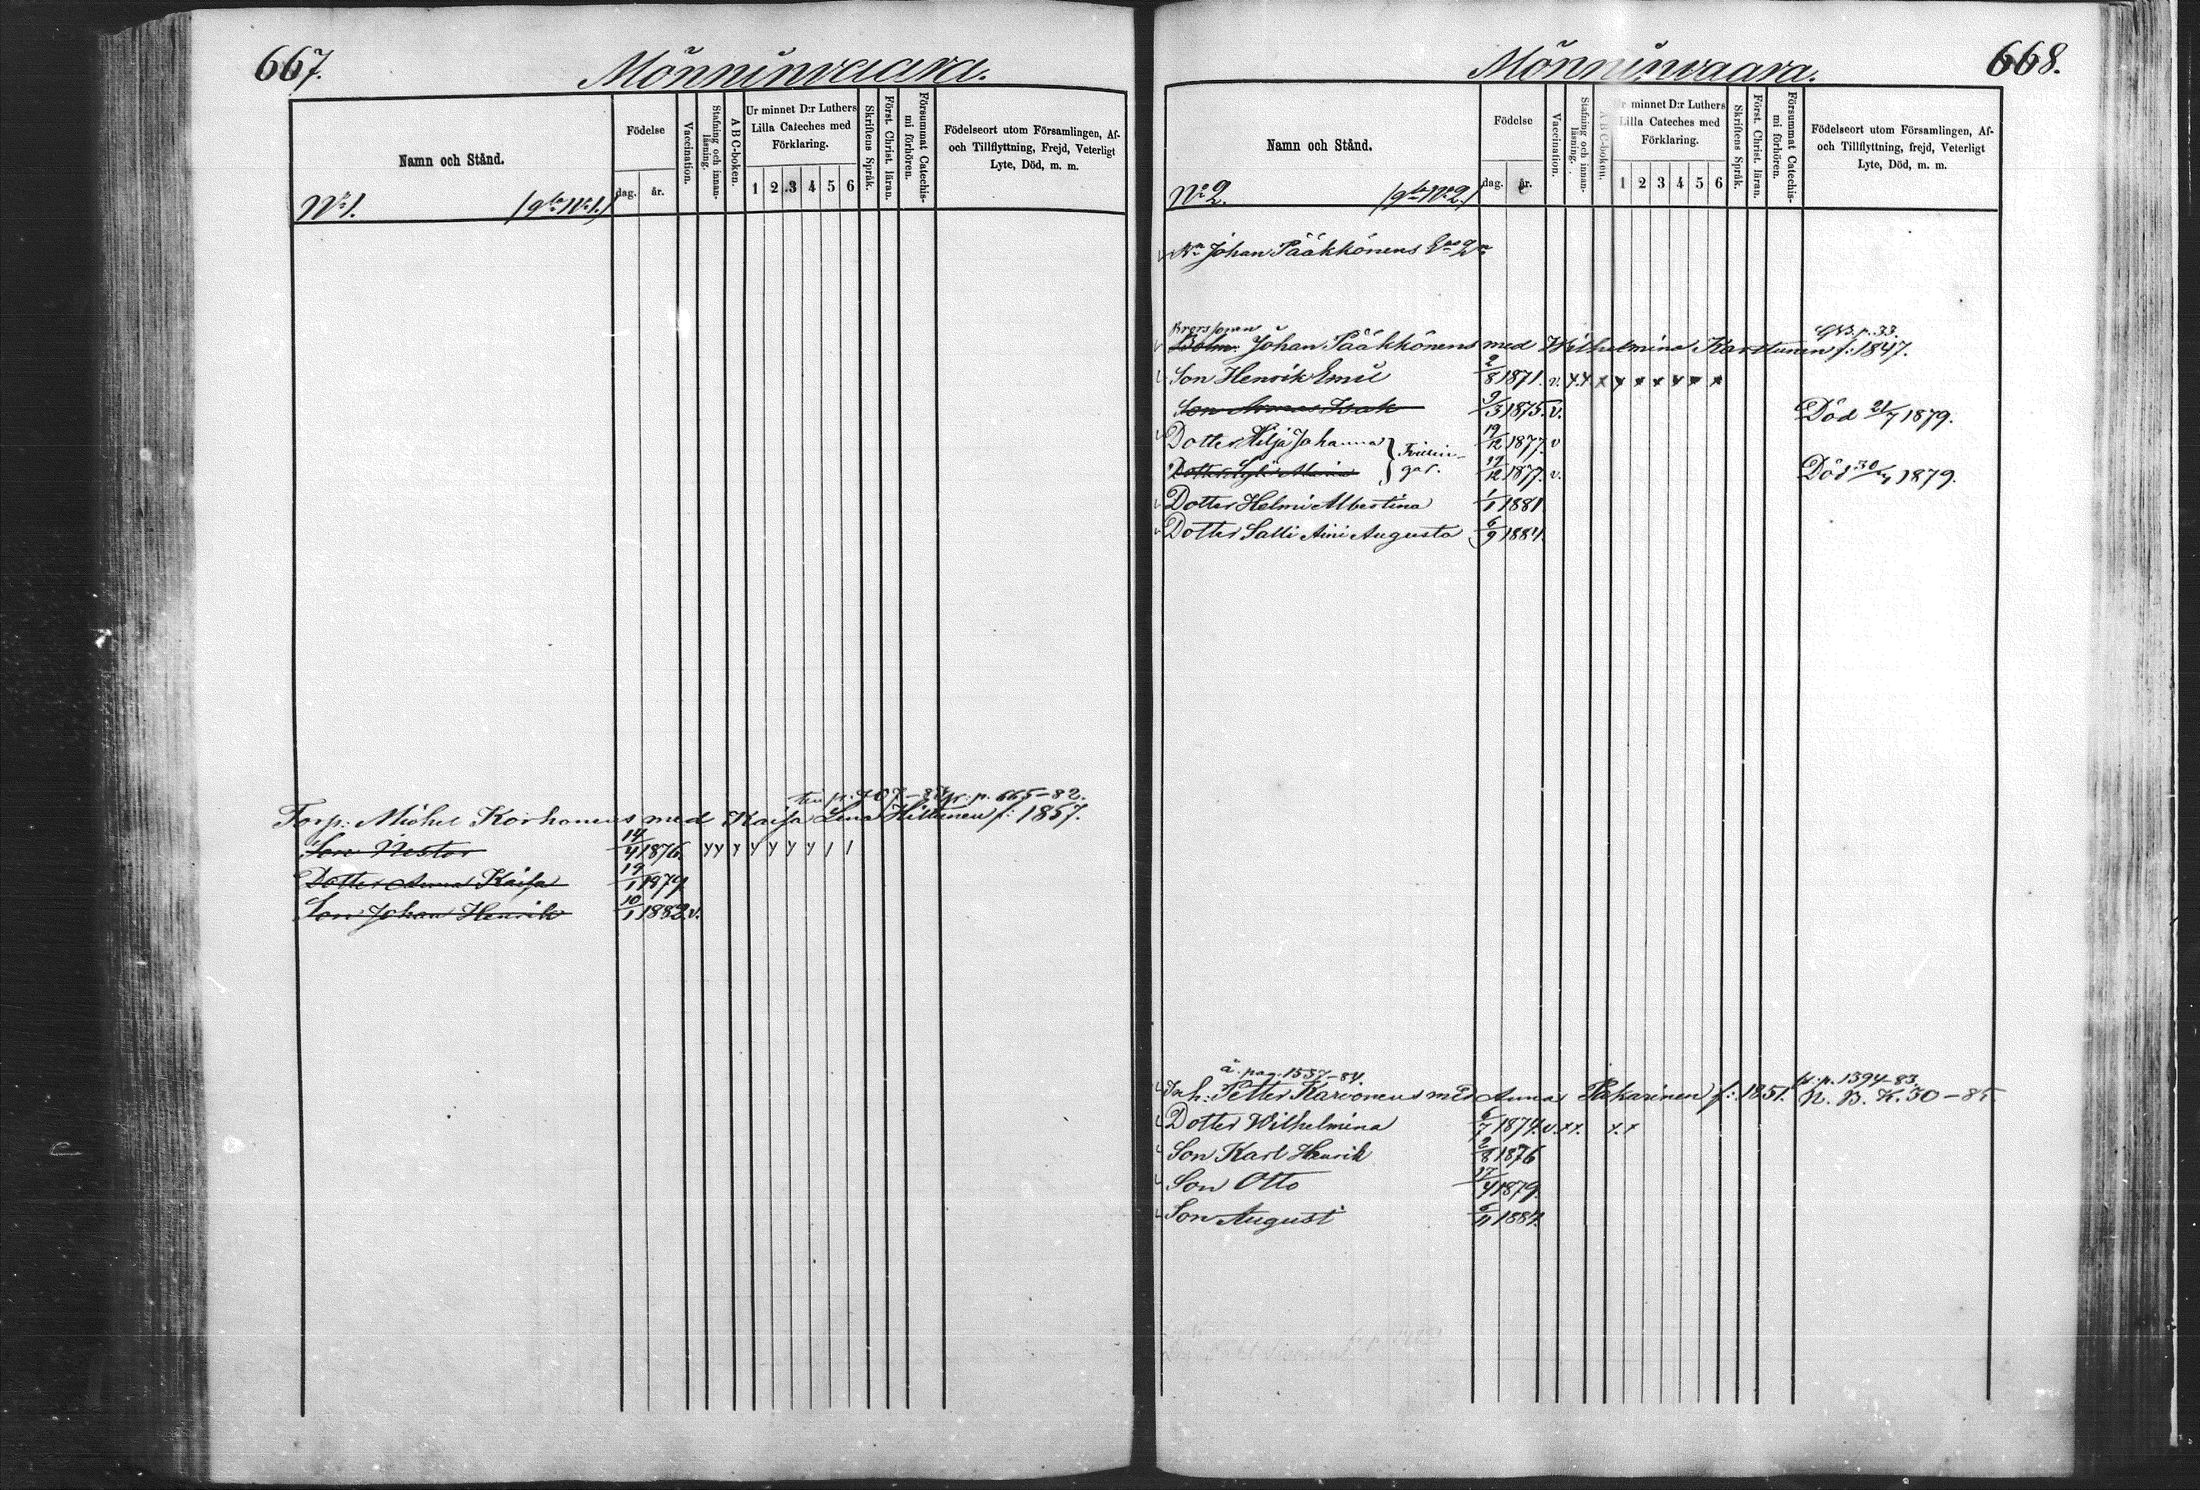 667.
Mönninvaara.
Namn och Stånd.
Födelse
dag. år.
Vaccination.
Stafning och innan-
läsning.
A B C-boken.
Ur minnet D:r Luthers
Lilla Cateches med
Förklaring.
1 2 3 4 5 6
Skriftens Språk.
Först. Christ. läran.
Försummat Catechis-
mi förhören.
Födelseort utom Församlingen, Af-
och Tillflyttning, Frejd, Veterligt
Lyte, Död, m. m.
N:o 1.
fr: p. 665-82.
Torp: Michel Korhonens med Kaisa Lena Hiltunen f: 1857.
Son Nestor 14/4 1876.
Dotter Anna Kaisa 19/1 1879
Son Johan Henrik 10/1 1882 v.
668.
Mönninvaara.
Namn och Stånd.
Födelse
dag. år.
Vaccination.
Stafning och innan-
läsning.
A B C-boken.
Ur minnet D:r Luthers
Lilla Cateches med
Förklaring.
1 2 3 4 5 6
Skriftens Språk.
Först. Christ. läran.
Försummat Catechis-
mi förhören.
Födelseort utom Församlingen, Af-
och Tillflyttning, frejd, Veterligt
Lyte, Död, m. m.
N:o 2.
Johan Pääkkönens
Brorsonen p. 33.
Bolm: Johan Pääkkönens med Wilhelmina Karttunen f: 1847.
Son Henrik Emil 2/8 1871. v. x x x x x x x x x
Son Isak 9/3 1875. v. Död 21/7 1879.
Dotter Hilja Johanna 19/12 1877. v Tvillin-
Dotter Maria 19/12 1877. v. gar. Död 30/7 1879.
Dotter Helmi Albertina 1/1 1881.
Dotter Salli Aini Augusta 6/9 1884.
å pag. 1537-84. fr. p. 1394-83.
Inh: Petter Karvonens med Anna Pakarinen f: 1851. N. B. K. 30-85
Dotter Wilhelmina 6/7 1874. v. x x. x. x
Son Karl Henrik 2/8 1876
Son Otto 17/4 1879
Son August 6/11 1884.